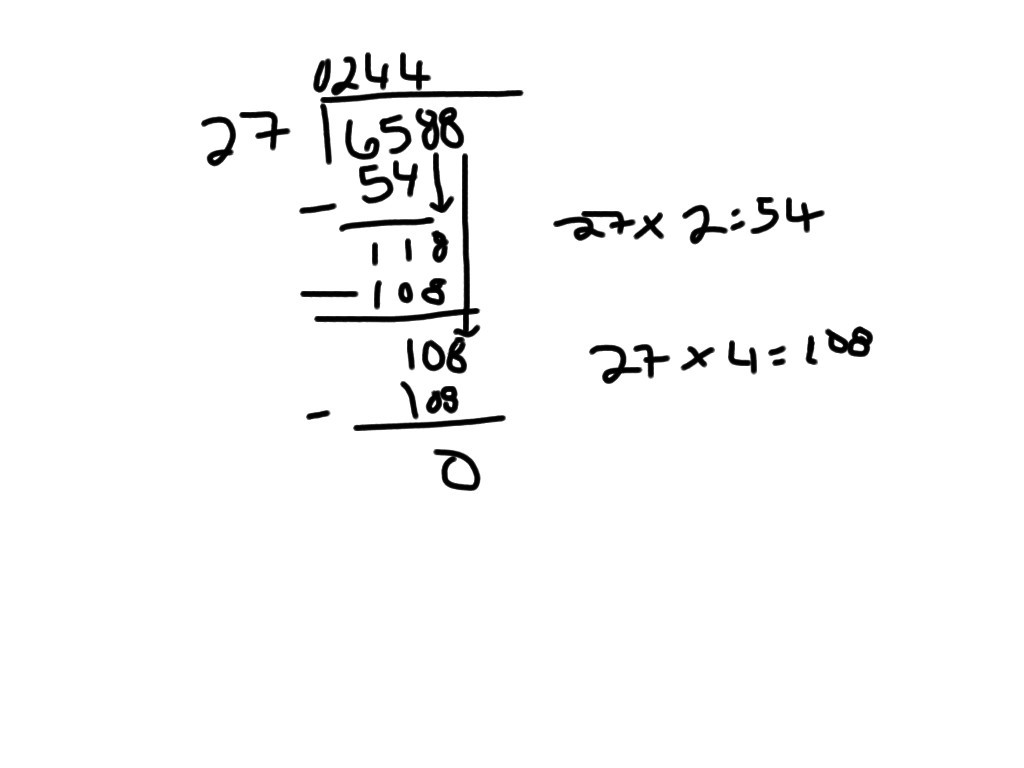 0244
27 6588
- 54
118
- 108
108
- 108
0
27 x 2 = 54
27 x 4 = 108